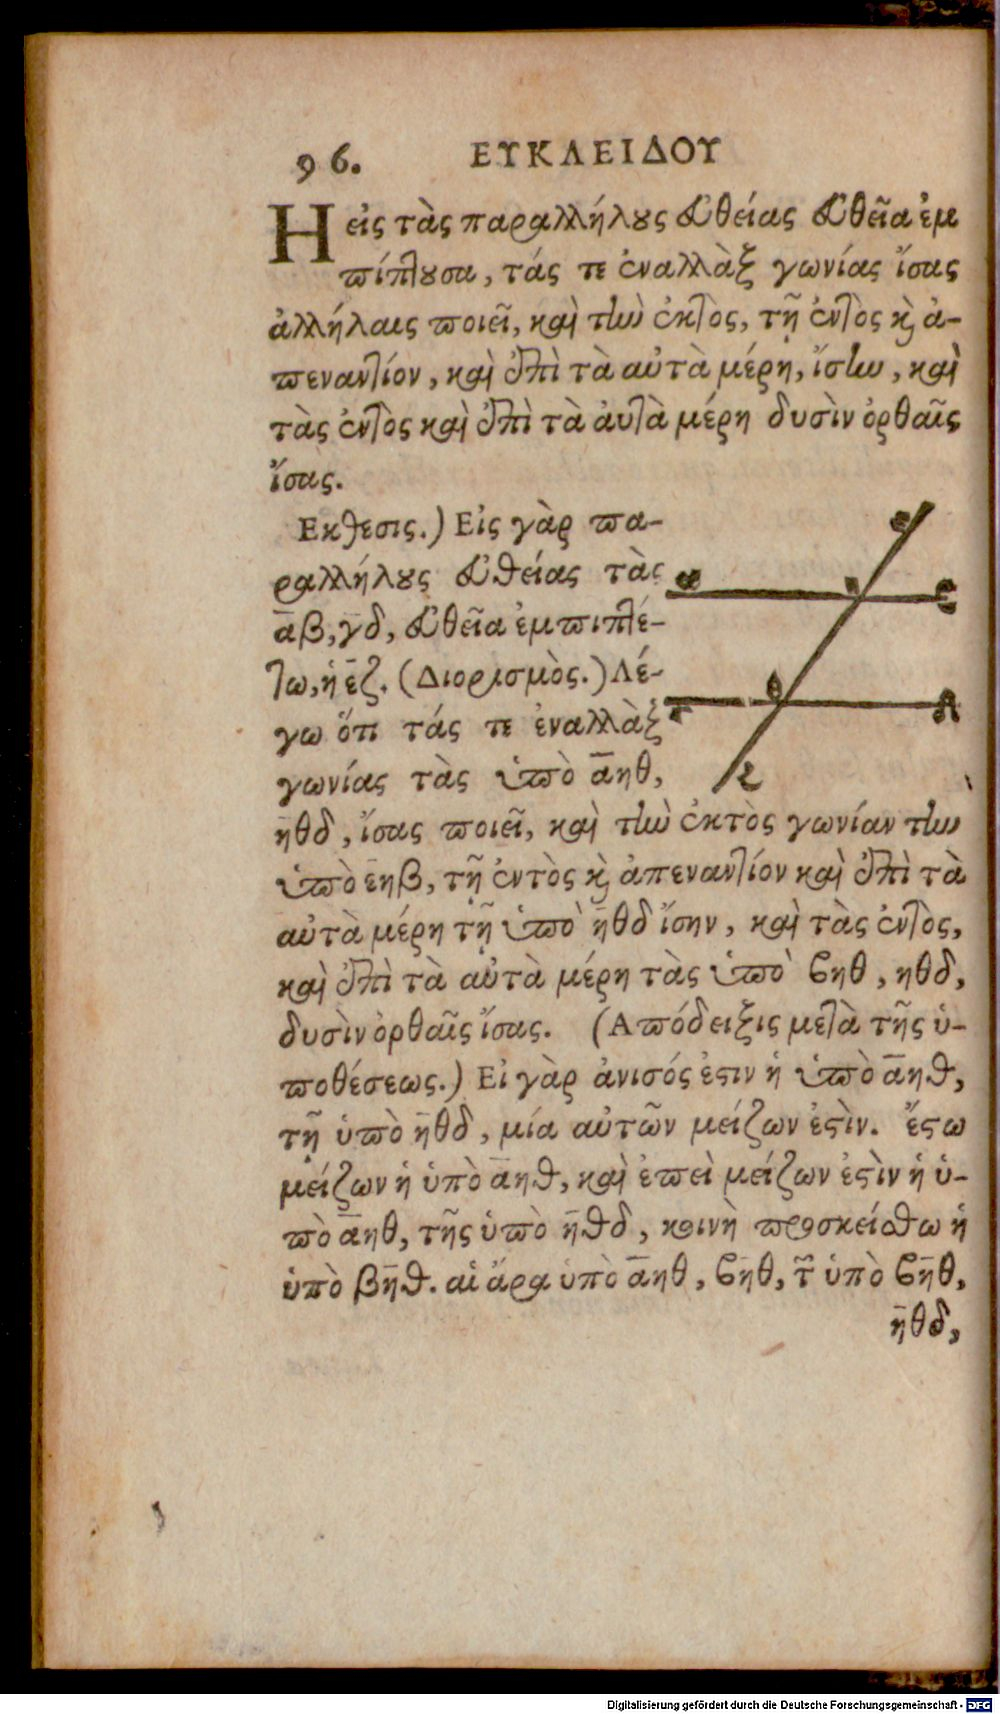 96. ΕΥΚΛΕΙΔΟΥ
Η εἰς τὰς παραλλήλους εὐθείας εὐθεῖα ἐμ
πίπτουσα, τάς τε ἐναλλὰξ γωνίας ἴσας
ἀλλήλαις ποιεῖ, καὶ τὴν ἐκτὸς, τῇ ἐντὸς κỳ ἀ-
πεναντίον, καὶ ἐπὶ τὰ αὐτὰ μέρη, ἴσην, καὶ
τὰς ἐντὸς καὶ ἐπὶ τὰ ἀυτὰ μέρη δυσὶν ὀρθαῖς
ἴσας.
Εκθεσις.) Εἰς γὰρ πα-
ραλλήλους εὐθείας τὰς
α̅β, γ̅δ, εὐθεῖα ἐμπιπτέ-
τω, ἡ ε̅ζ. (Διορισμὸς.) Λέ-
γω ὅτι τάς τε ἐναλλὰξ
γωνίας τὰς ὑπὸ α̅ηθ,
η̅θδ, ἴσας ποιεῖ, καὶ τὴν ἐκτὸς γωνίαν τὴν
ὑπὸ ε̅ηβ, τῇ ἐντὸς κỳ ἀπεναντίον καὶ ἐπὶ τὰ
αὐτὰ μέρη τῇ ὑπὸ η̅θδ ἴσην, καὶ τὰς ἐντὸς,
καὶ ἐπὶ τὰ αὐτὰ μέρη τὰς ὑπὸ βηθ, ηθδ,
δυσὶν ὀρθαῖς ἴσας. (Απόδειξις μετὰ τῆς ὑ-
ποθέσεως.) Εἰ γὰρ ἀνισός ἐστιν ἡ ὑπὸ α̅ηθ,
τῇ ὑπὸ η̅θδ, μία αὐτῶν μείζων ἐστὶν. ἔστω
μείζων ἡ ὑπὸ α̅ηθ, καὶ ἐπεὶ μείζων ἐστὶν ἡ ὑ-
πὸ α̅ηθ, τῆς ὑπὸ η̅θδ, κοινὴ προσκείσθω ἡ
ὑπὸ βη̅θ. αἱ ἄρα ὑπὸ α̅ηθ, βη̅θ, τ῀ ὑπὸ βη̅θ,
η̅θδ,
ε
α η β
γ θ δ
ζ
Digitalisierung gefördert durch die Deutsche Forschungsgemeinschaft - DFG